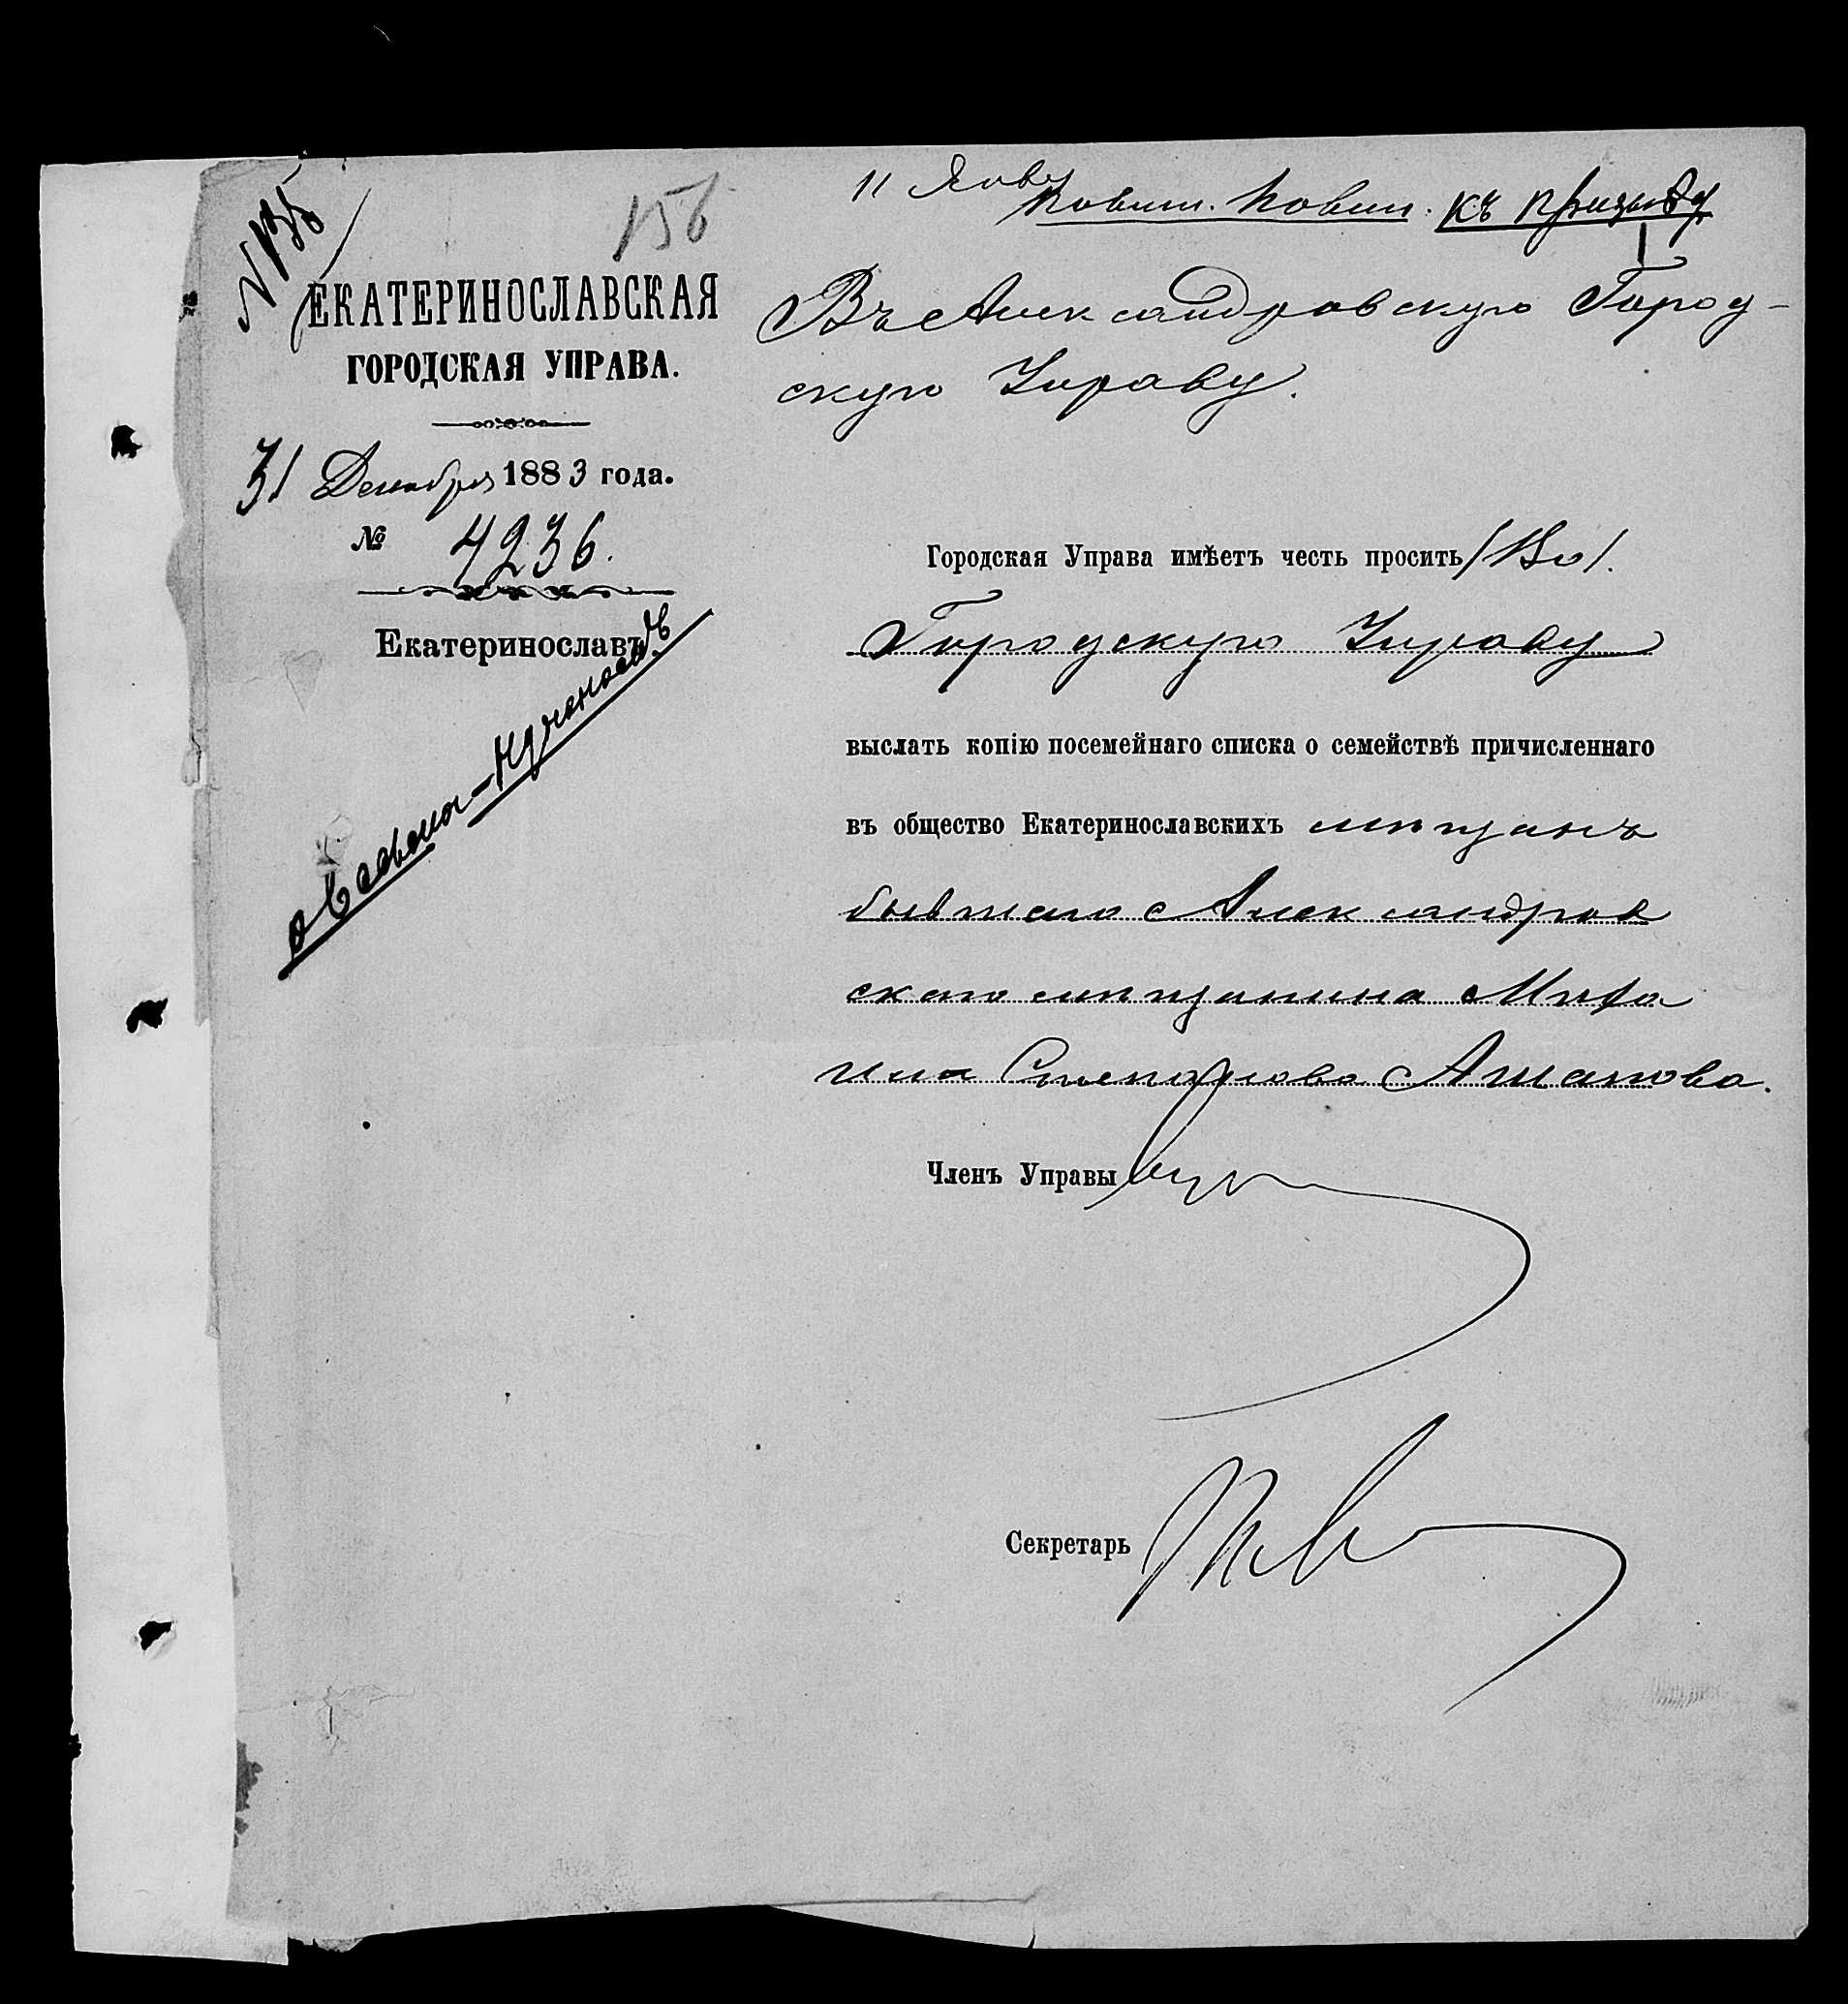 156
11 Янв.
Повин. Повин. Къ призыву
ЕКАТЕРИНОСЛАВСКАЯ
ГОРОДСКАЯ УПРАВА.
31 Декабря 1883 года.
№ 4236.
Екатеринославъ.
Въ Александровскую Город-
скую Управу.
Городская Управа имѣетъ честь просить
Городскую Управу
выслать копію посемейнаго списка о семействѣ причисленнаго
въ общество Екатеринославскихъ мѣщанъ
бывшаго Александров
скаго мѣщанина Миха
ила Ашапова.
Членъ Управы
Секретарь